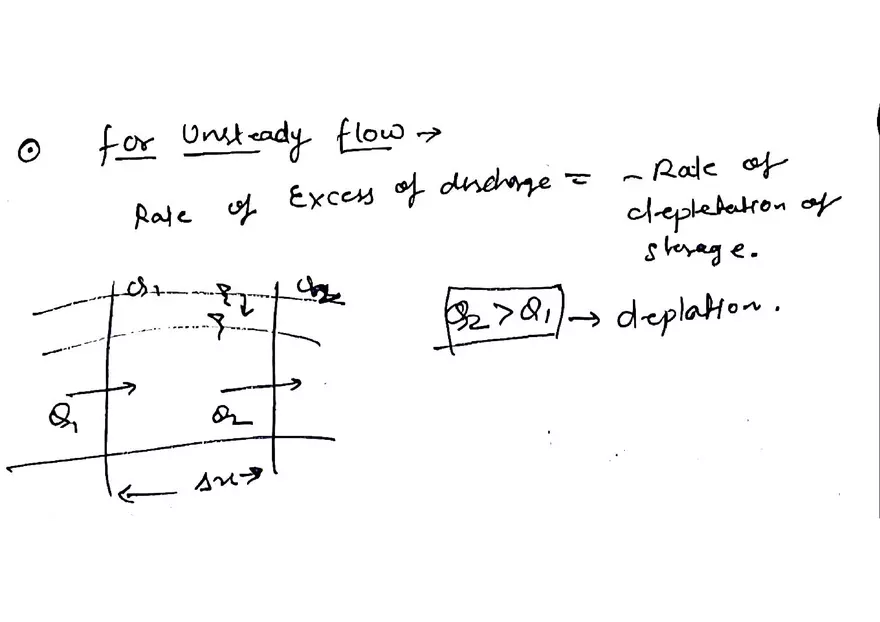 ⊙ for Unsteady flow →
Rate of Excess of discharge = - Rate of
depletation of
storage.
Q1
Q2 > Q1 → deplation.
Q1
Q2
Δx